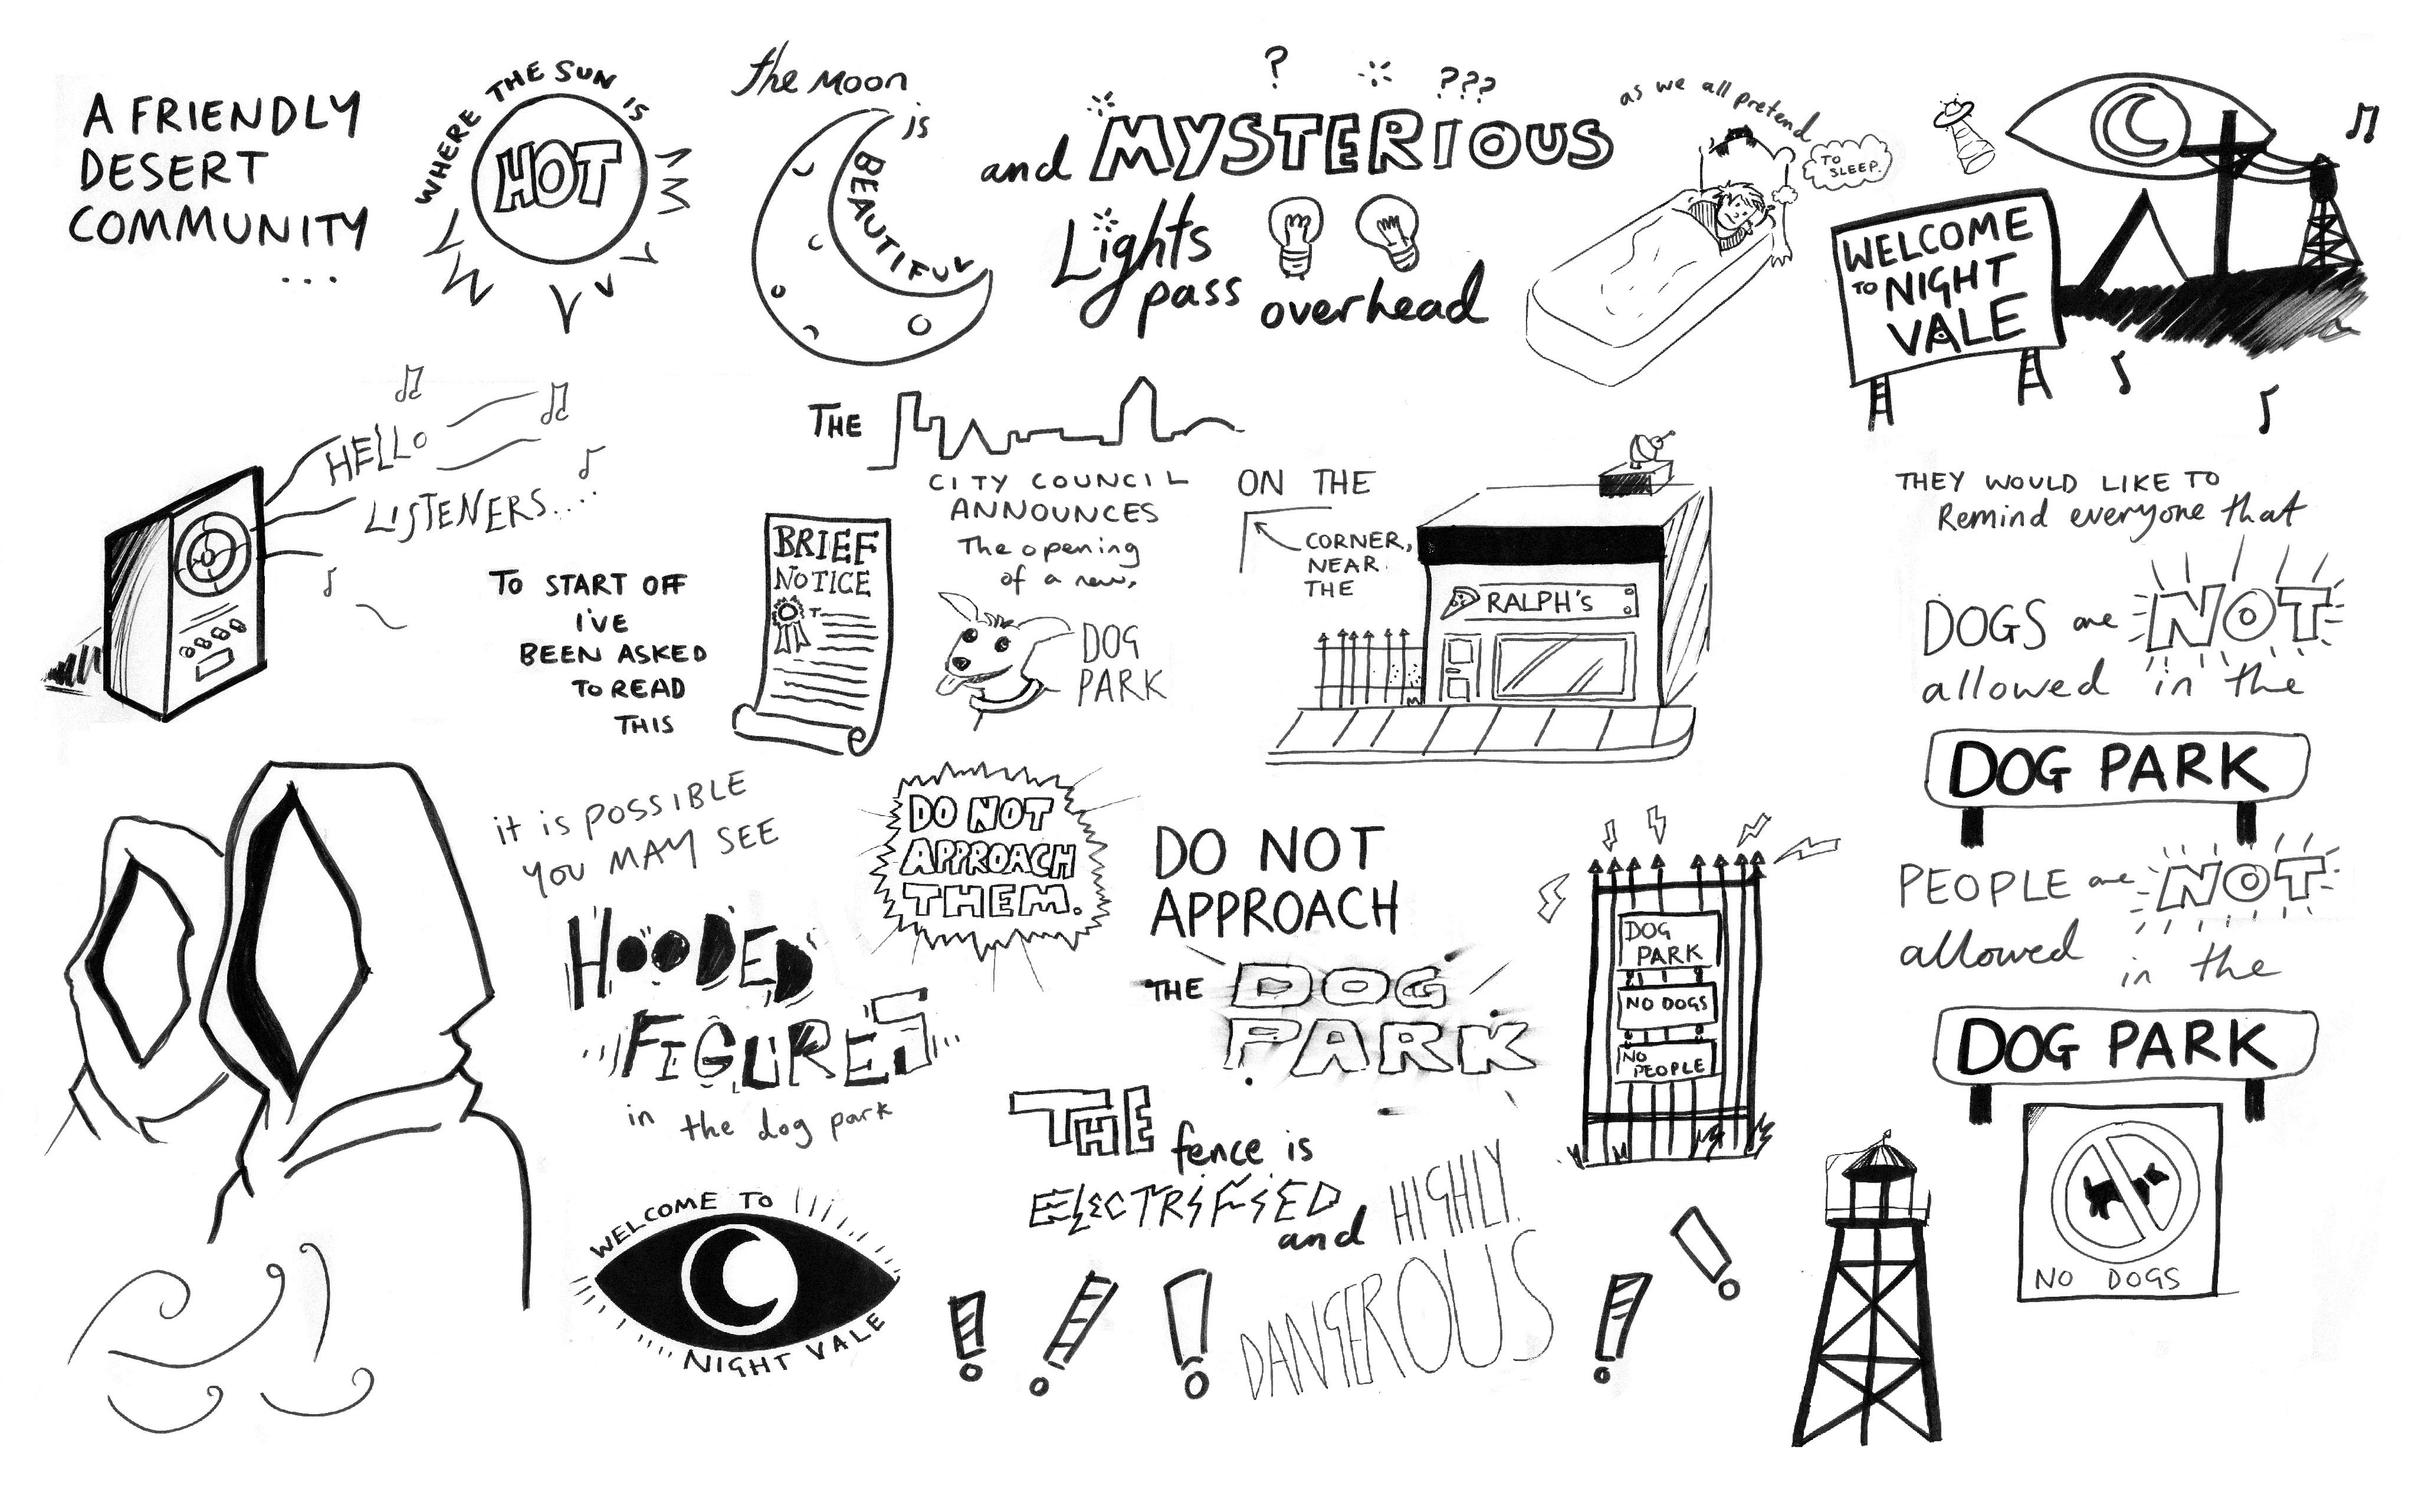 A FRIENDLY
DESERT
COMMUNITY
...
WHERE THE SUN IS
HOT
the MOON
is
BEAUTIFUL
? ???
and MYSTERIOUS
Lights
pass overhead
as we all pretend
TO
SLEEP.
WELCOME
TO NIGHT
VALE
HELLO
LISTENERS....
TO START OFF
I'VE
BEEN ASKED
TO READ
THIS
BRIEF
NOTICE
THE
CITY COUNCIL
ANNOUNCES
The opening
of a new,
DOG
PARK
ON THE
CORNER,
NEAR
THE
RALPH'S
THEY WOULD LIKE TO
Remind everyone that
DOGS are NOT
allowed in the
DOG PARK
PEOPLE are NOT
allowed in the
DOG PARK
NO DOGS
it is POSSIBLE
YOU MAY SEE
HOODED
FIGURES
in the dog park
DO NOT
APPROACH
THEM.
DO NOT
APPROACH
THE DOG
PARK
DOG
PARK
NO DOGS
NO
PEOPLE
THE
fence is
ELECTRIFIED
and HIGHLY
DANGEROUS
! ! ! ! !
WELCOME TO
NIGHT VALE